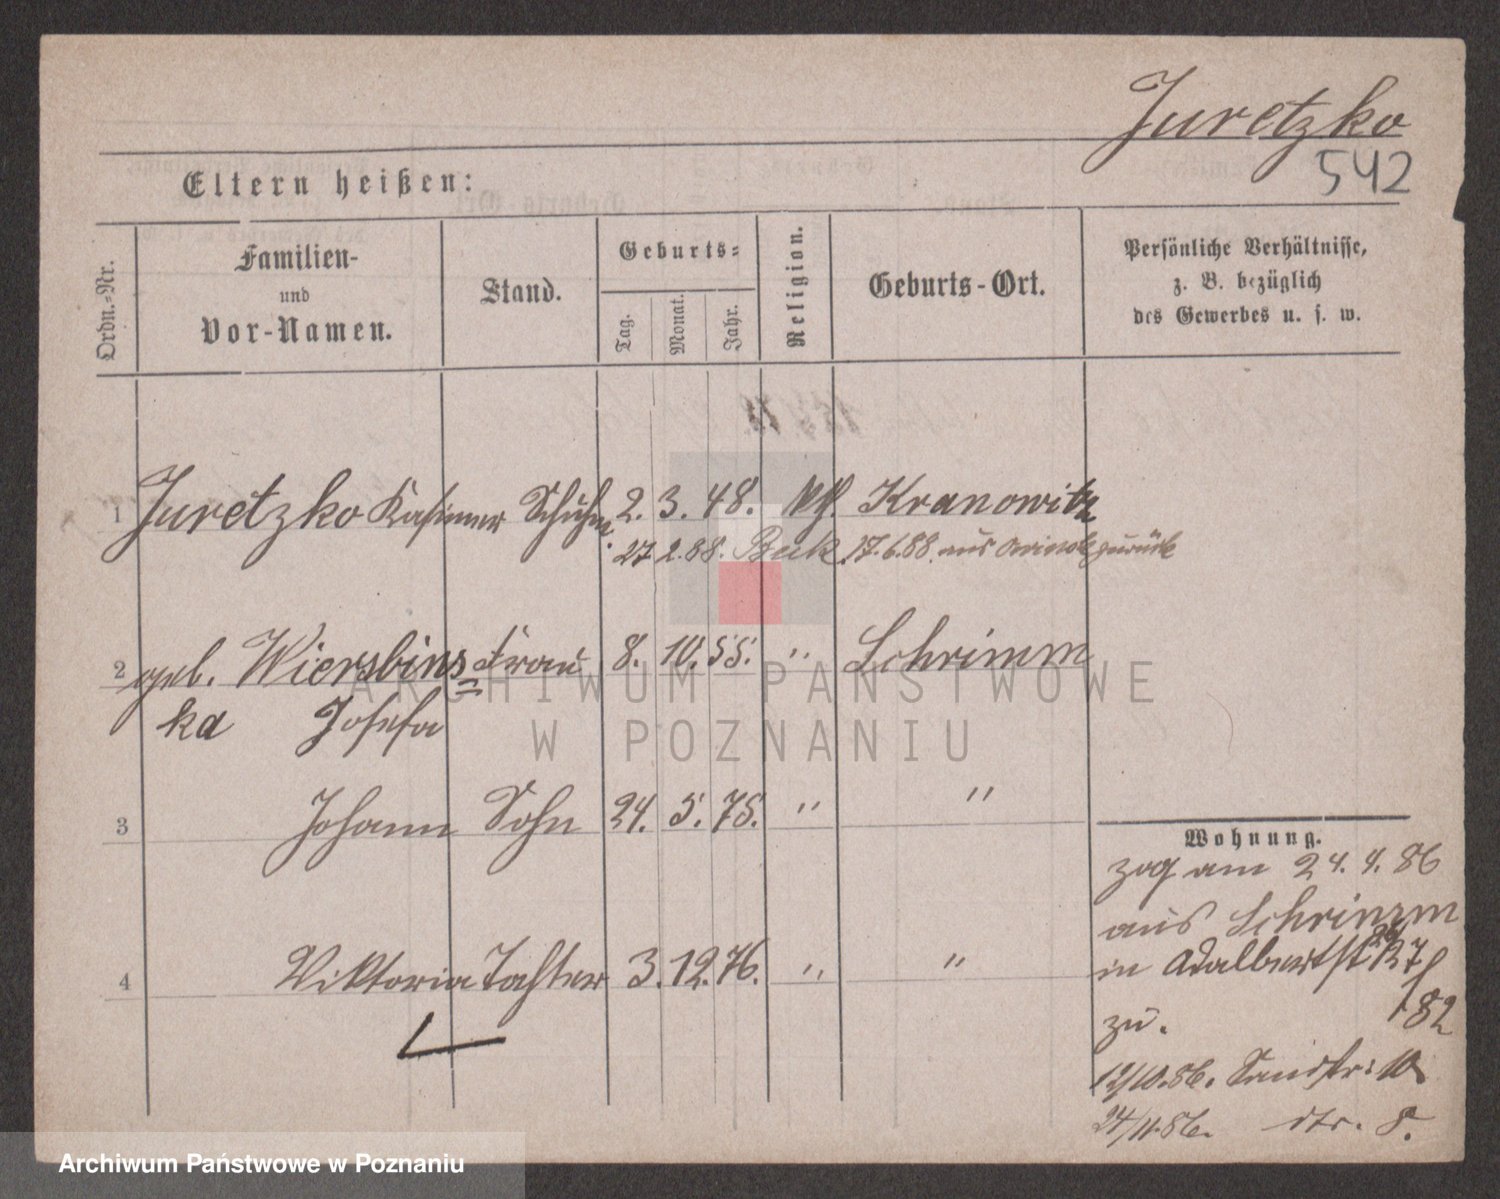 Juretzko
542
Eltern heißen:
Ordn.-Nr.
Familien-
und
Vor-Namen.
Stand.
Geburts-
Tag.
Monat.
Jahr.
Religion.
Geburts-Ort.
Persönliche Verhältnisse,
z. B. bezüglich
des Gewerbes u. s. w.
1 Juretzko Kasimer Schuhm. 2. 3. 48. kth. Kranowitz
27 2. 88. 17.6.88. aus zurück
2 geb. Wiersbins= Frau 8. 10. 55. " Schrimm
ka Josefa
ARCHIWUM PAŃSTWOWE
W POZNANIU
3 Johann Sohn 24. 5. 75. " "
Wohnung.
zog am 24. 4. 86
aus Schrimm
4 Viktoria Tochter 3. 12. 76. " "
in Adalbertst
82
zu.
12/10.86. Sandstr: 10
24/11.86. dto. 8.
Archiwum Państwowe w Poznaniu